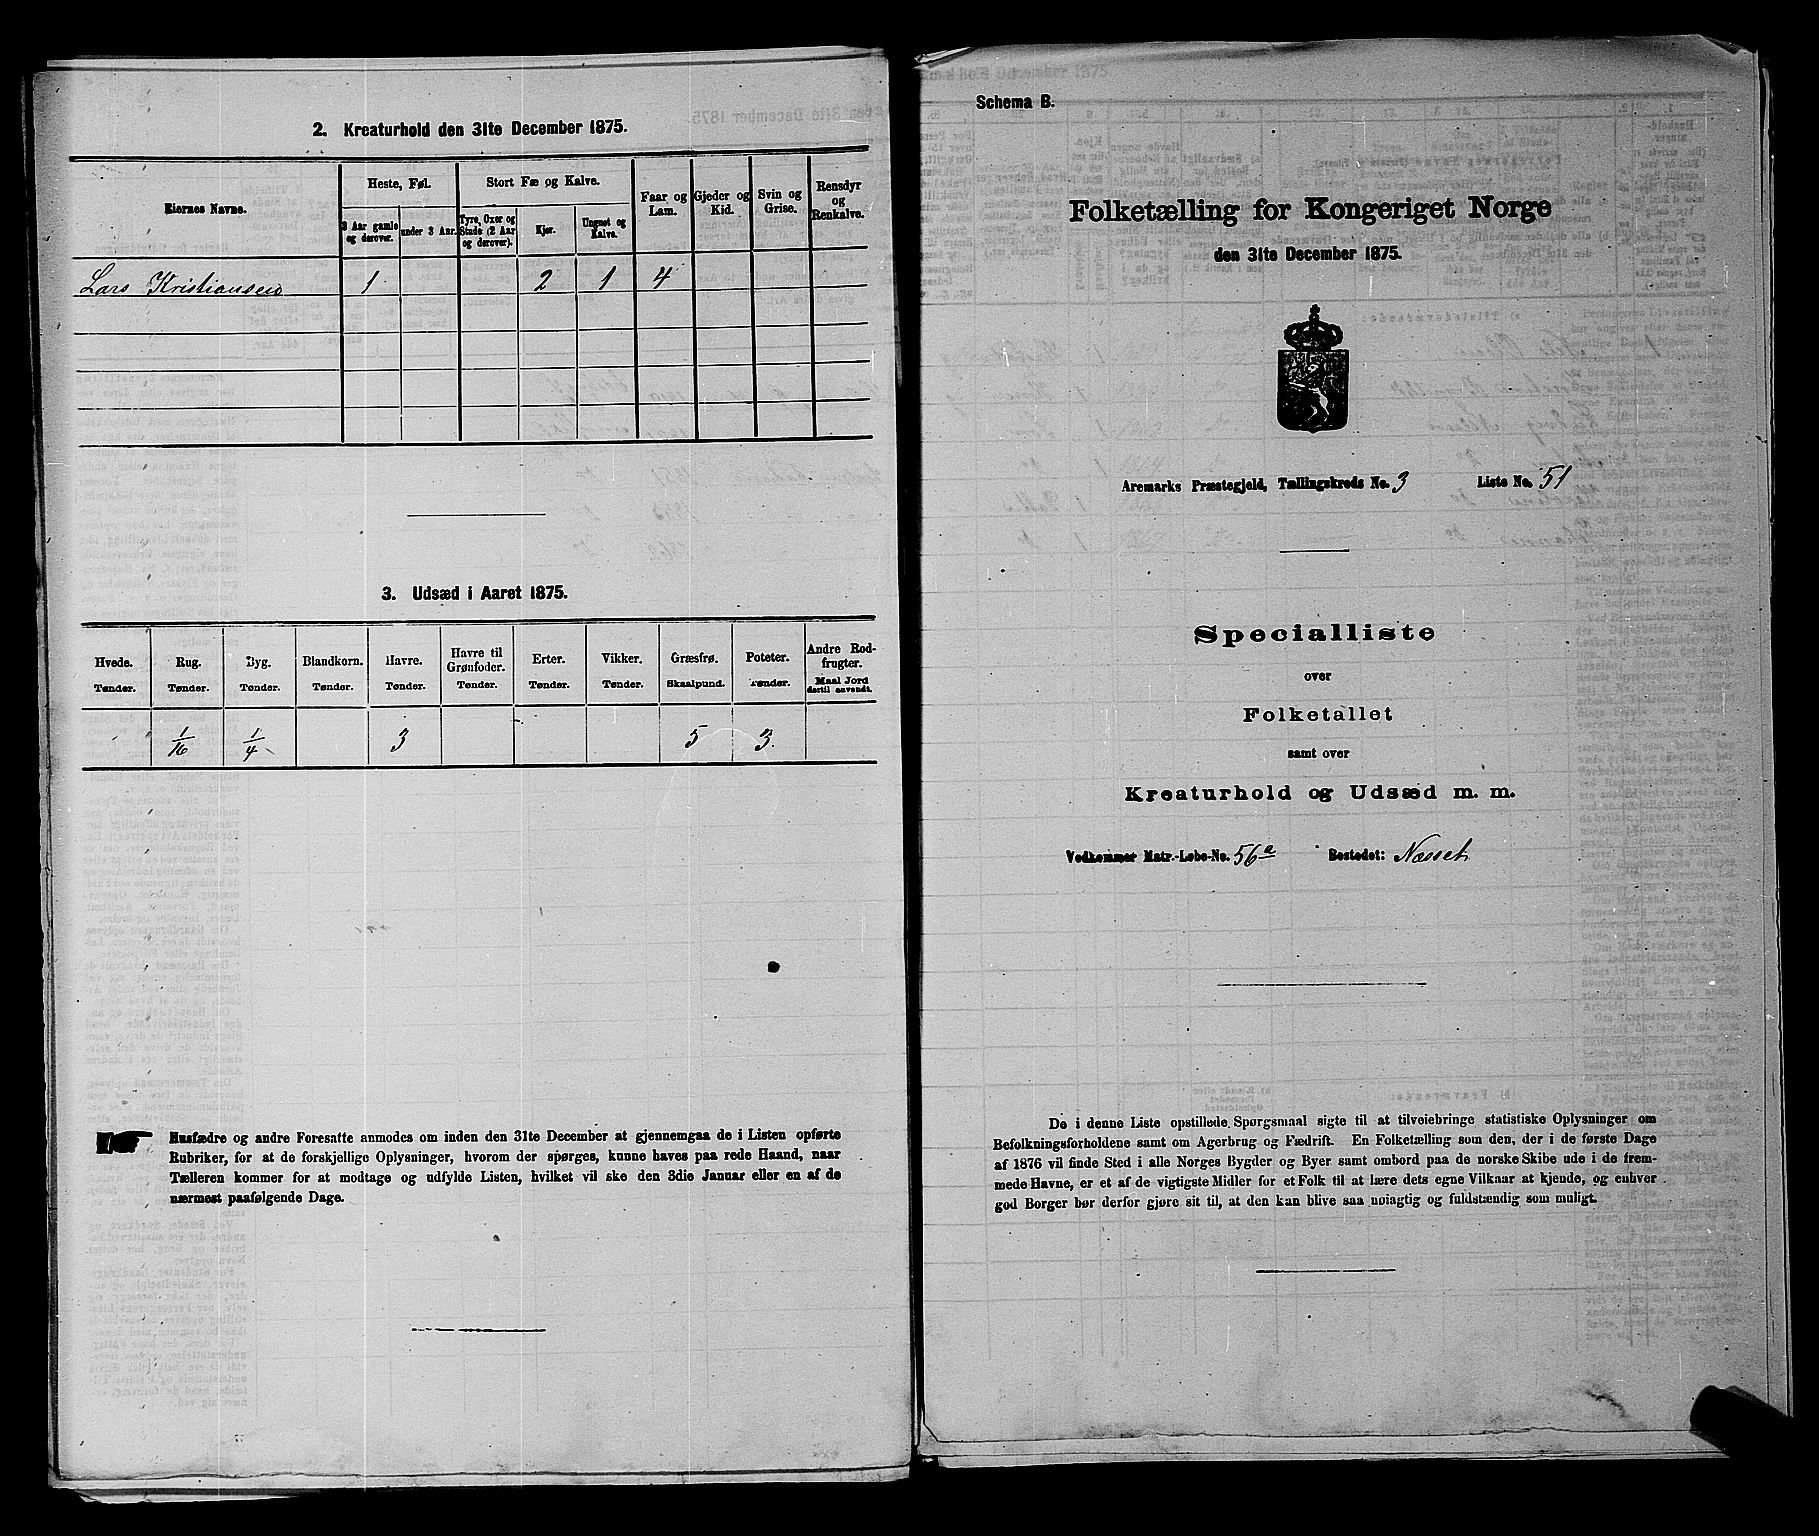 2. Kreaturhold den 31te December 1875.
Eiernes Navne.
Heste, Føl.
Stort Fæ og Kalve.
Faar og Lam.
Gjeder og Kid.
Svin og Grise.
Rensdyr og Renkalve.
3 Aar gamle og derover.
under 3 Aar.
Tyre, Oxer og Stude (2 Aar og derover).
Kjør.
Ungnøt og Kalve.
Lars Kristiansen 1 2 1 4
3. Udsæd i Aaret 1875.
Hvede. Rug. Byg. Blandkorn. Havre. Havre til Grønfoder. Erter. Vikker. Græsfrø. Poteter. Andre Rodfrugter.
Tønder. Tønder. Tønder. Tønder. Tønder. Tønder. Tønder. Tønder. Skaalpund. Tønder. Maal Jord dertil anvendt.
1/16 1/4 3 5 3.
Husfædre og andre Foresatte anmodes om inden den 31te December at gjennemgaa de i Listen opførte
Rubriker, for at de forskjellige Oplysninger, hvorom der spørges, kunne haves paa rede Haand, naar
Tælleren kommer for at modtage og udfylde Listen, hvilket vil ske den 3die Januar eller en af de
nærmest paafølgende Dage.
Schema B.
Folketælling for Kongeriget Norge
den 31te December 1875.
Aremarks Præstegjeld, Tællingskreds No. 3 Liste No. 51
Specialliste
over
Folketallet
samt over
Kreaturhold og Udsæd m. m.
Vedkommer Matr.-Løbe-No. 56a Bostedet: Næsset
De i denne Liste opstillede Spørgsmaal sigte til at tilveiebringe statistiske Oplysninger om
Befolkningsforholdene samt om Agerbrug og Fædrift. En Folketælling som den, der i de første Dage
af 1876 vil finde Sted i alle Norges Bygder og Byer samt ombord paa de norske Skibe ude i de frem-
mede Havne, er et af de vigtigste Midler for et Folk til at lære dets egne Vilkaar at kjende, og enhver
god Borger bør derfor gjøre sit til, at den kan blive saa nøiagtig og fuldstændig som muligt.